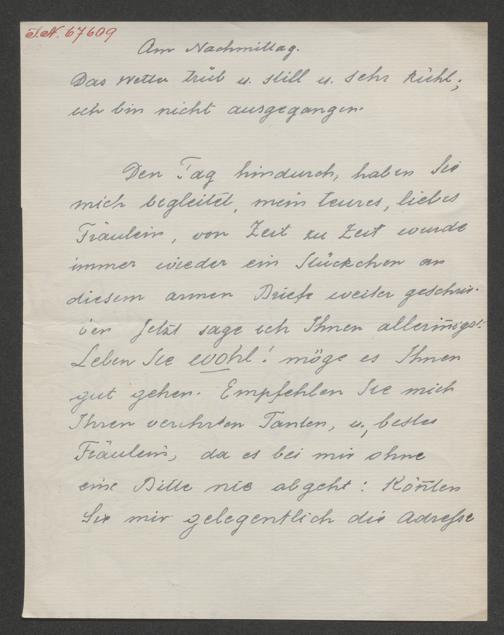 I.N. 67609
Am Nachmittag.
Das Wetter trüb u. still u. sehr kühl;
ich bin nicht ausgegangen.
Den Tag hindurch, haben Sie
mich begleitet, mein teures, liebes
Fräulein, von Zeit zu Zeit wurde
immer wieder ein Stückchen an
diesem armen Briefe weiter geschrie-
ben Jetzt sage ich Ihnen allerinnigst:
Leben Sie wohl! möge es Ihnen
gut gehen. Empfehlen Sie mich
Ihren verehrten Tanten, u, bestes
Fräulein, da es bei mir ohne
eine Bitte nie abgeht: Kön̄ten
Sie mir gelegentlich die Adresse